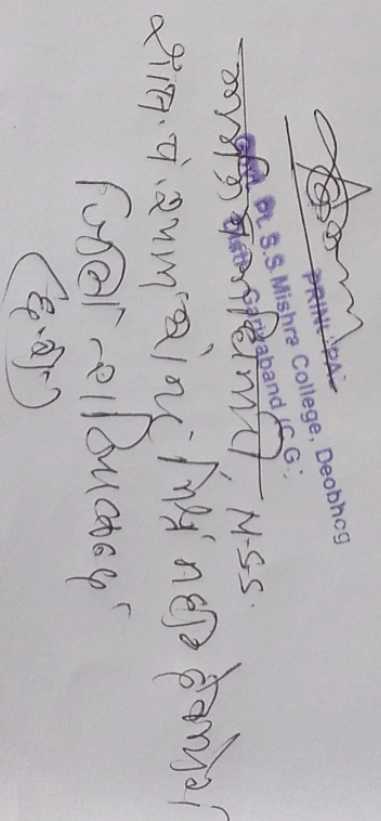 PRINCIPAL
Govt. Pt. S.S. Mishra College, Deobhog
Distt. Gariyaband (C.G.)
कार्यक्रम अधिकारी N.S.S.
शास. पं. श्यामशंकर मिश्र महा. देवभोग
जिला - गरियाबंद
(छ.ग.)